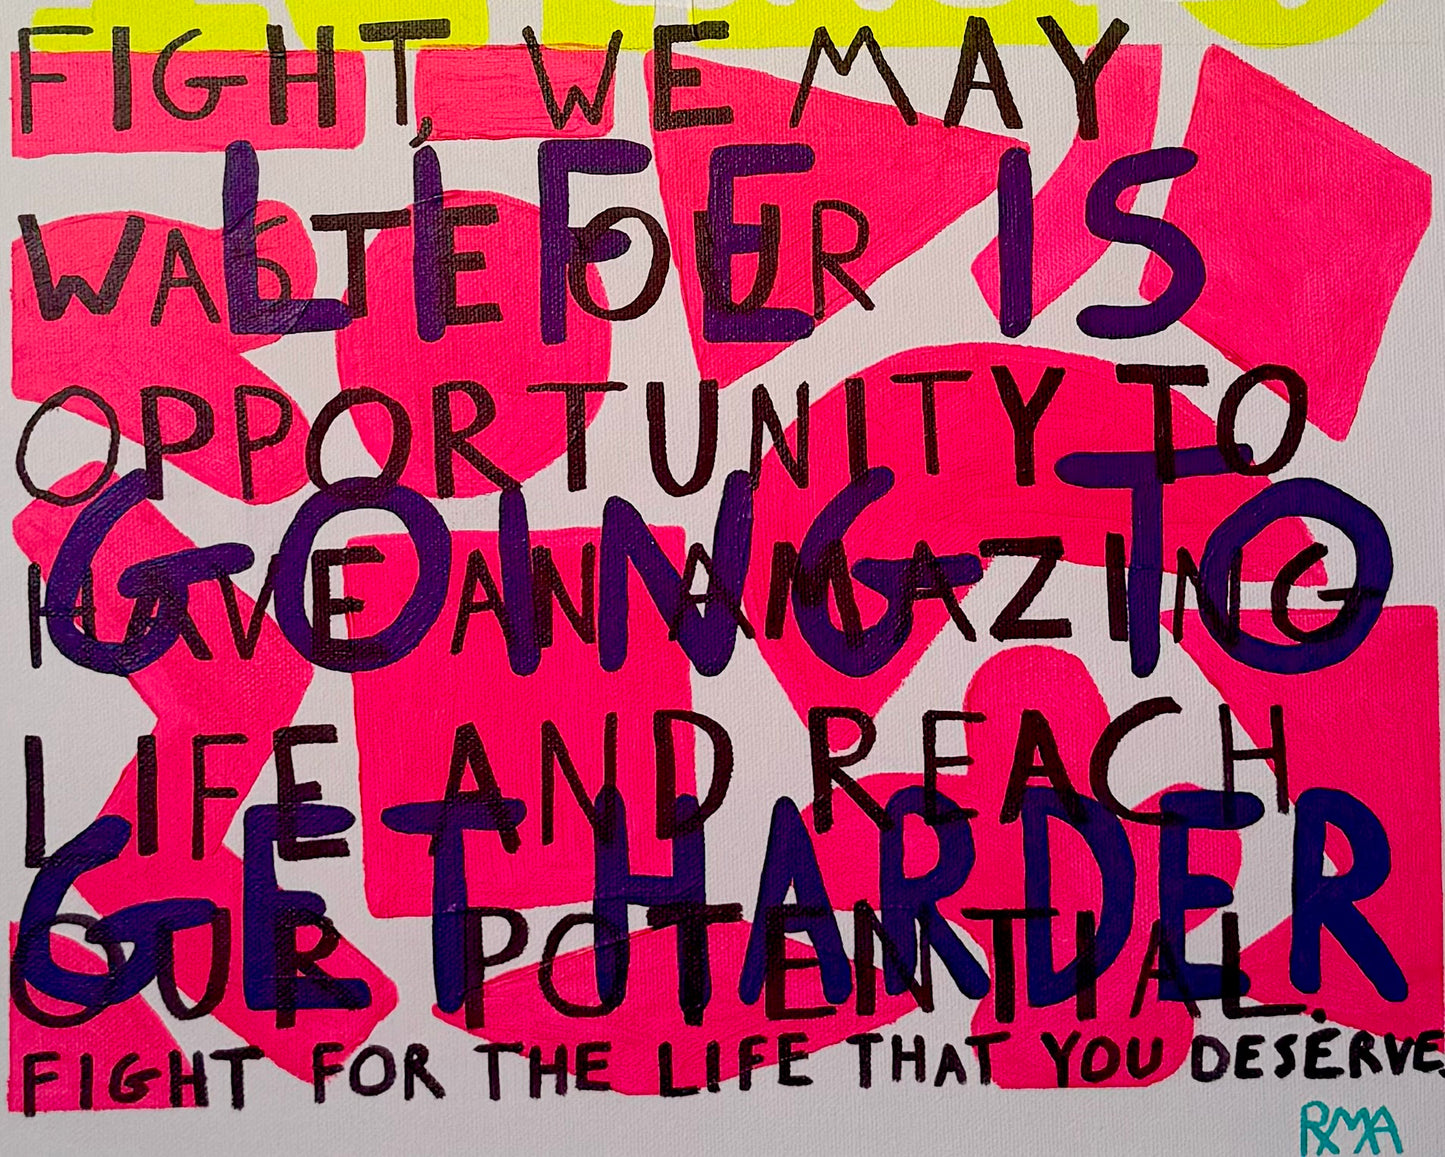 FIGHT, WE MAY
LIFE IS
WASTE OUR
OPPORTUNITY TO
GOING TO
HAVE AN AMAZING
LIFE AND REACH
GET HARDER
OUR POTENTIAL.
FIGHT FOR THE LIFE THAT YOU DESERVE.
RMA